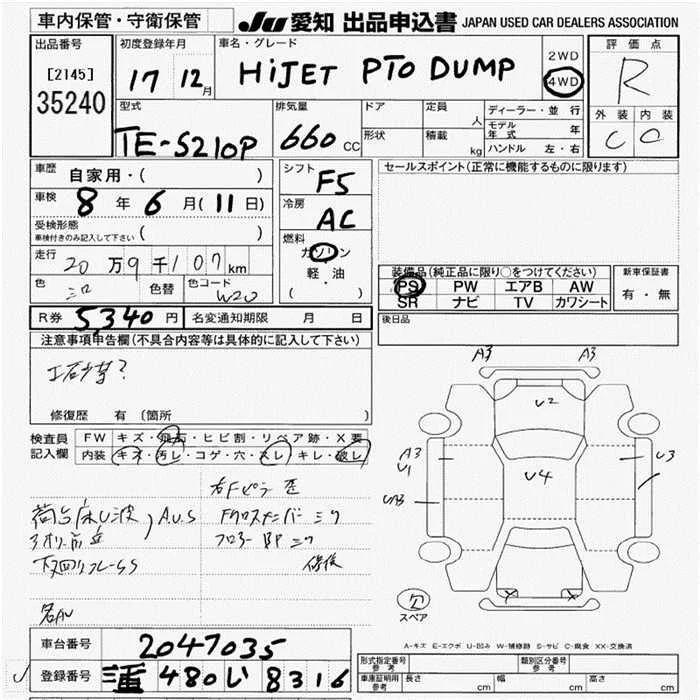 車内保管・守衛保管 JU 愛知 出品申込書 JAPAN USED CAR DEALERS ASSOCIATION
出品番号 初度登録年月 車名・グレード 2WD 評価点
[2145] 17 12月 HIJET PTO DUMP 4WD R
35240 型式 排気量 ドア 定員 人 ディーラー・並行 外装 内装
TE-S210P 660 CC 形状 積載 kg モデル年式 年 C C
ハンドル 左・右
車歴 自家用・( ) シフト F5 セールスポイント(正常に機能するものに限ります)
車検 8年 6月(11日) 冷房 AC
受検形態 ( )
車検付きのみ記入して下さい
燃料 ガソリン
走行 20万9千107km 軽・油 装備品(純正品に限り○をつけてください) 新車保証書
色 シロ 色替 色コード W20 ( ) PS PW エアB AW 有・無
SR ナビ TV カワシート
R券 5,340円 名変通知期限 月 日 後日品
注意事項申告欄(不具合内容等は具体的に記入して下さい)
修復歴 有 (箇所 )
A3 A3
U2
A3 U3
U1
U4
検査員 FW キズ・飛石・ヒビ割・リペア跡・X要
記入欄 内装 キズ・汚レ・コゲ・穴・スレ・キレ・破レ
右Fピラー歪
荷台床U波, A.U.S Fクロスメンバーミク
下回りフレームS
欠
スペア
A-キズ E-エクボ U-凹み W-補修跡 S-サビ C-腐食 XX-交換済
車台番号 2047035 形式指定番号 参考 類別区分番号 参考
登録番号 三重 480 い 8316 車庫証明用 参考 長さ cm 幅 cm 高さ cm